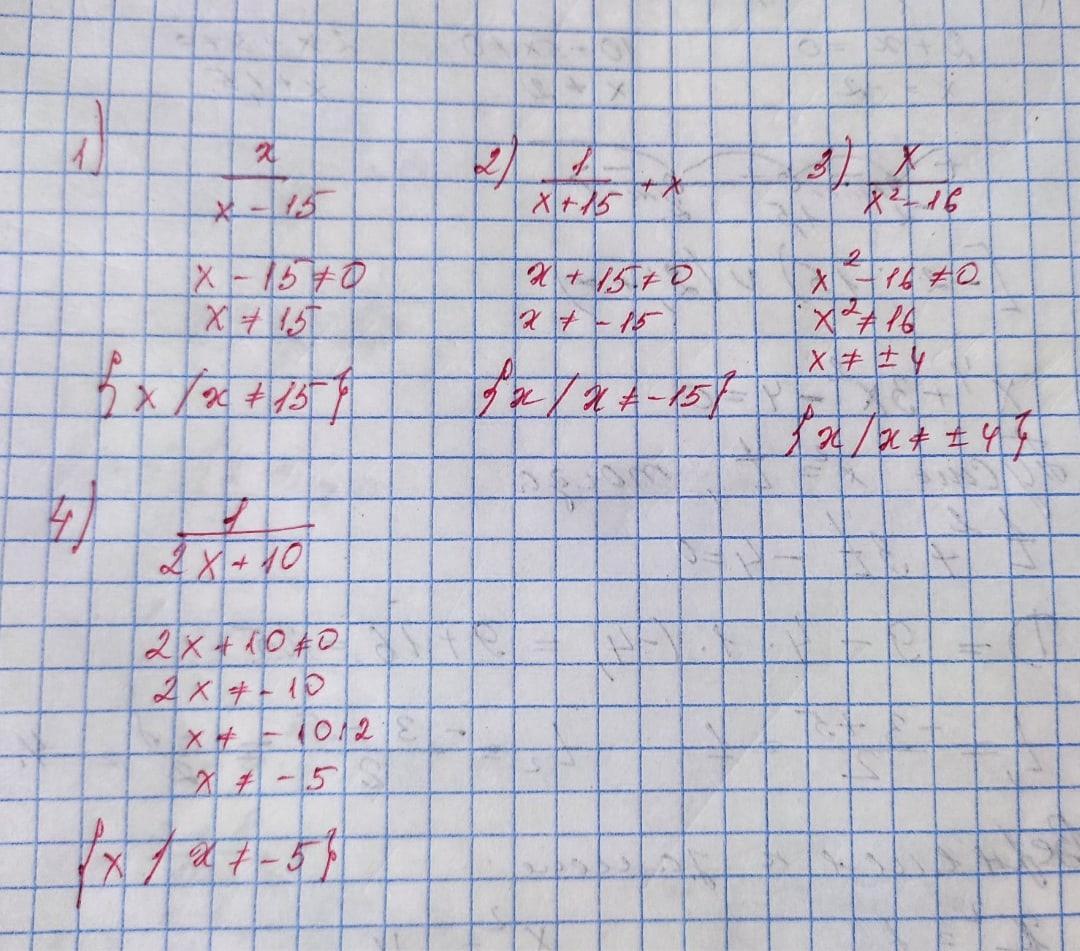 1) x/(x - 15)
x - 15 ≠ 0
x ≠ 15
{x / x ≠ 15}
2) 1/(x + 15) + x
x + 15 ≠ 0
x ≠ -15
{x / x ≠ -15}
3) x/(x² - 16)
x² - 16 ≠ 0
x² ≠ 16
x ≠ ± 4
{x / x ≠ ± 4}
4) 1/(2x + 10)
2x + 10 ≠ 0
2x ≠ -10
x ≠ -10:2
x ≠ -5
{x / x ≠ -5}